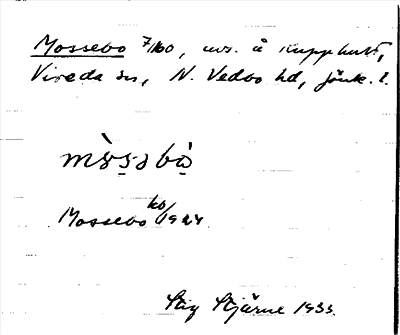 Mossebo 7/160, avs. å uppskutt,
Vireda sn, N. Vedbo hd, Jönk. l.
mo̊s̤ɜbò̤
Mossebo kb/1924
Stig Stjärne 1933.